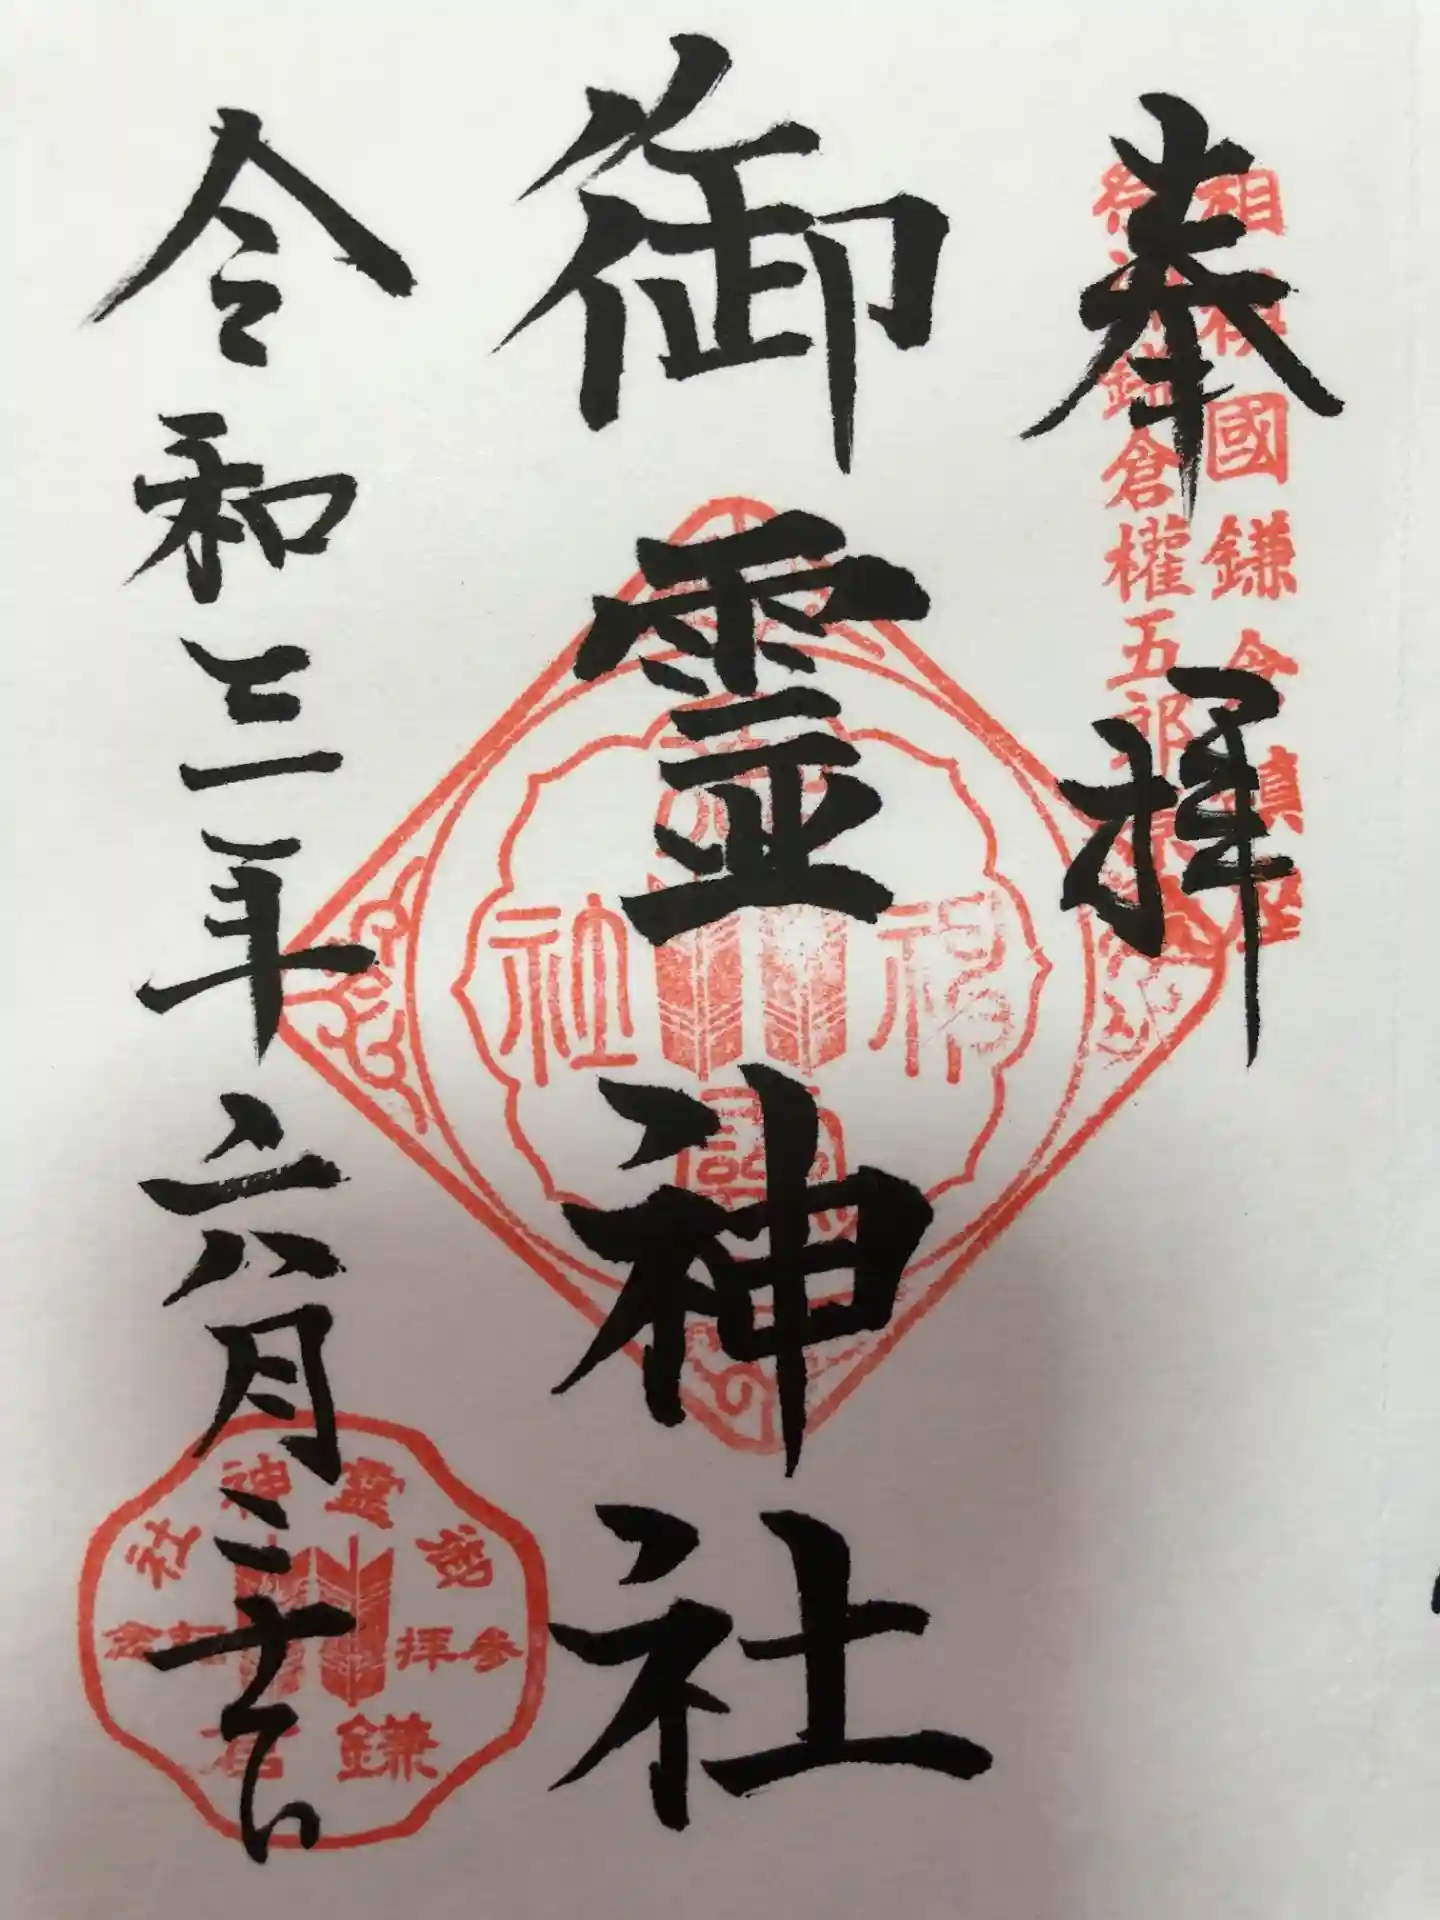 奉拝
相模國鎌倉鎮座
祭神鎌倉權五郎景
御霊神社
御霊神社
令和三年六月二十七日
御靈神社
参拝記念
鎌倉